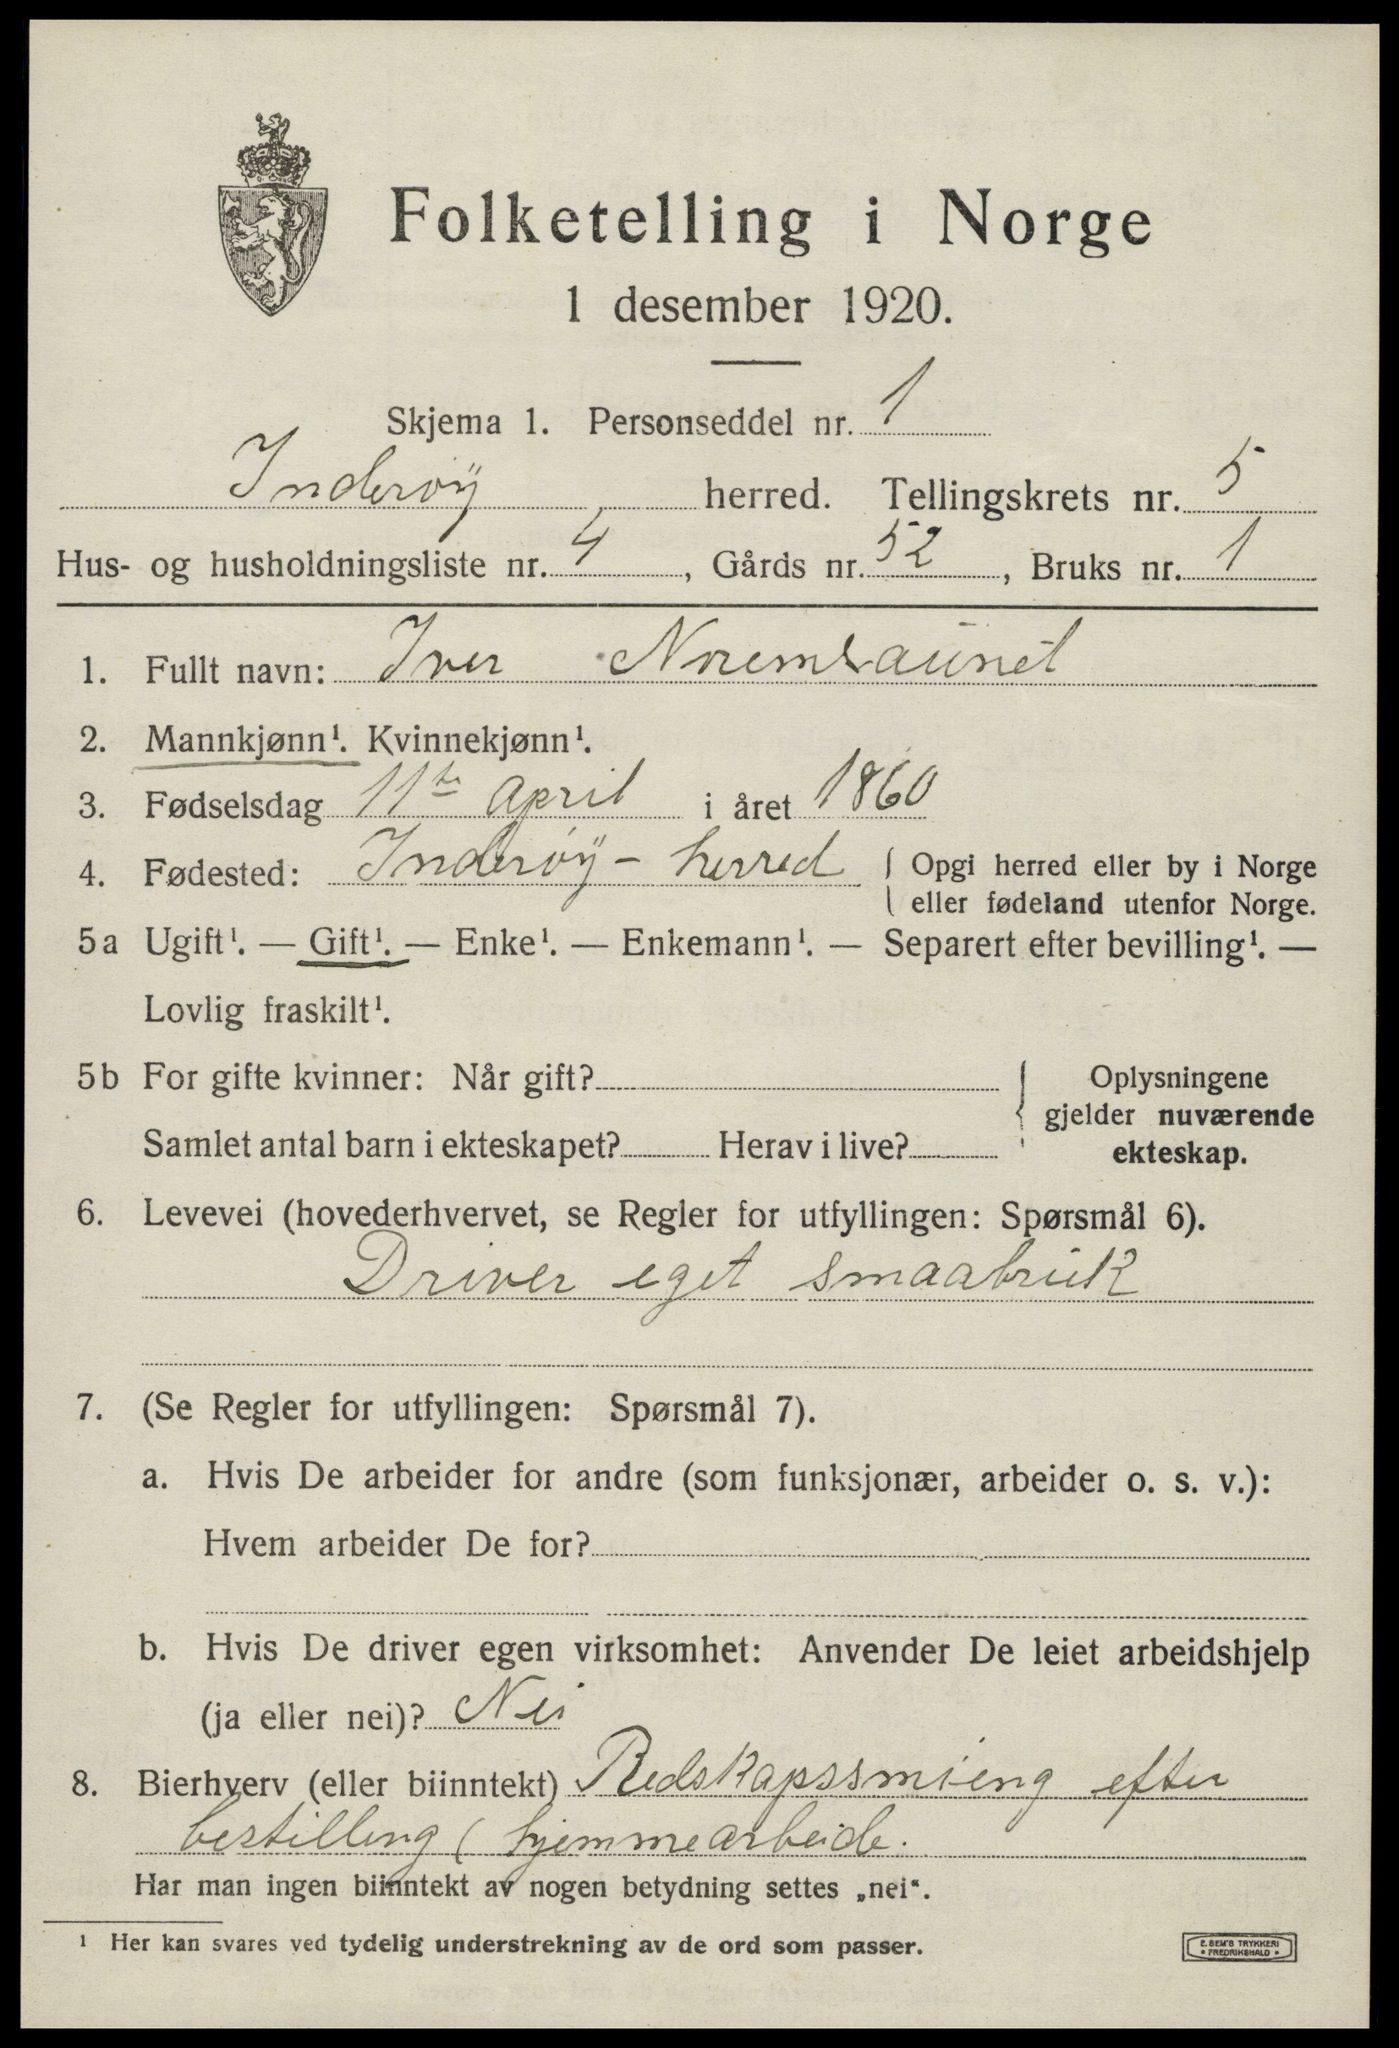 Folketelling i Norge
1 desember 1920.
Skjema 1. Personseddel nr. 1
Inderøy herred. Tellingskrets nr. 5
Hus- og husholdningsliste nr. 4, Gårds nr. 52, Bruks nr. 1
1. Fullt navn: Iver Noremsaunet
2. Mannkjønn¹. Kvinnekjønn¹.
3. Fødselsdag 11te April i året 1860
4. Fødested: Inderøy - herred { Opgi herred eller by i Norge
eller fødeland utenfor Norge.
5a Ugift¹. — Gift¹. — Enke¹. — Enkemann¹. — Separert efter bevilling¹. —
Lovlig fraskilt¹.
5b For gifte kvinner: Når gift? } Oplysningene
gjelder nuværende
Samlet antal barn i ekteskapet? Herav i live? ekteskap.
6. Levevei (hovederhvervet, se Regler for utfyllingen: Spørsmål 6).
Driver eget smaabruk
7. (Se Regler for utfyllingen: Spørsmål 7).
a. Hvis De arbeider for andre (som funksjonær, arbeider o. s. v.):
Hvem arbeider De for?
b. Hvis De driver egen virksomhet: Anvender De leiet arbeidshjelp
(ja eller nei)? Nei
8. Bierhverv (eller biinntekt) Redskapssmieng efter
bestilling ( hjemmearbeide.
Har man ingen biinntekt av nogen betydning settes „nei“.
¹ Her kan svares ved tydelig understrekning av de ord som passer.
E. SEM'S TRYKKERI
• FREDRIKSHALD •